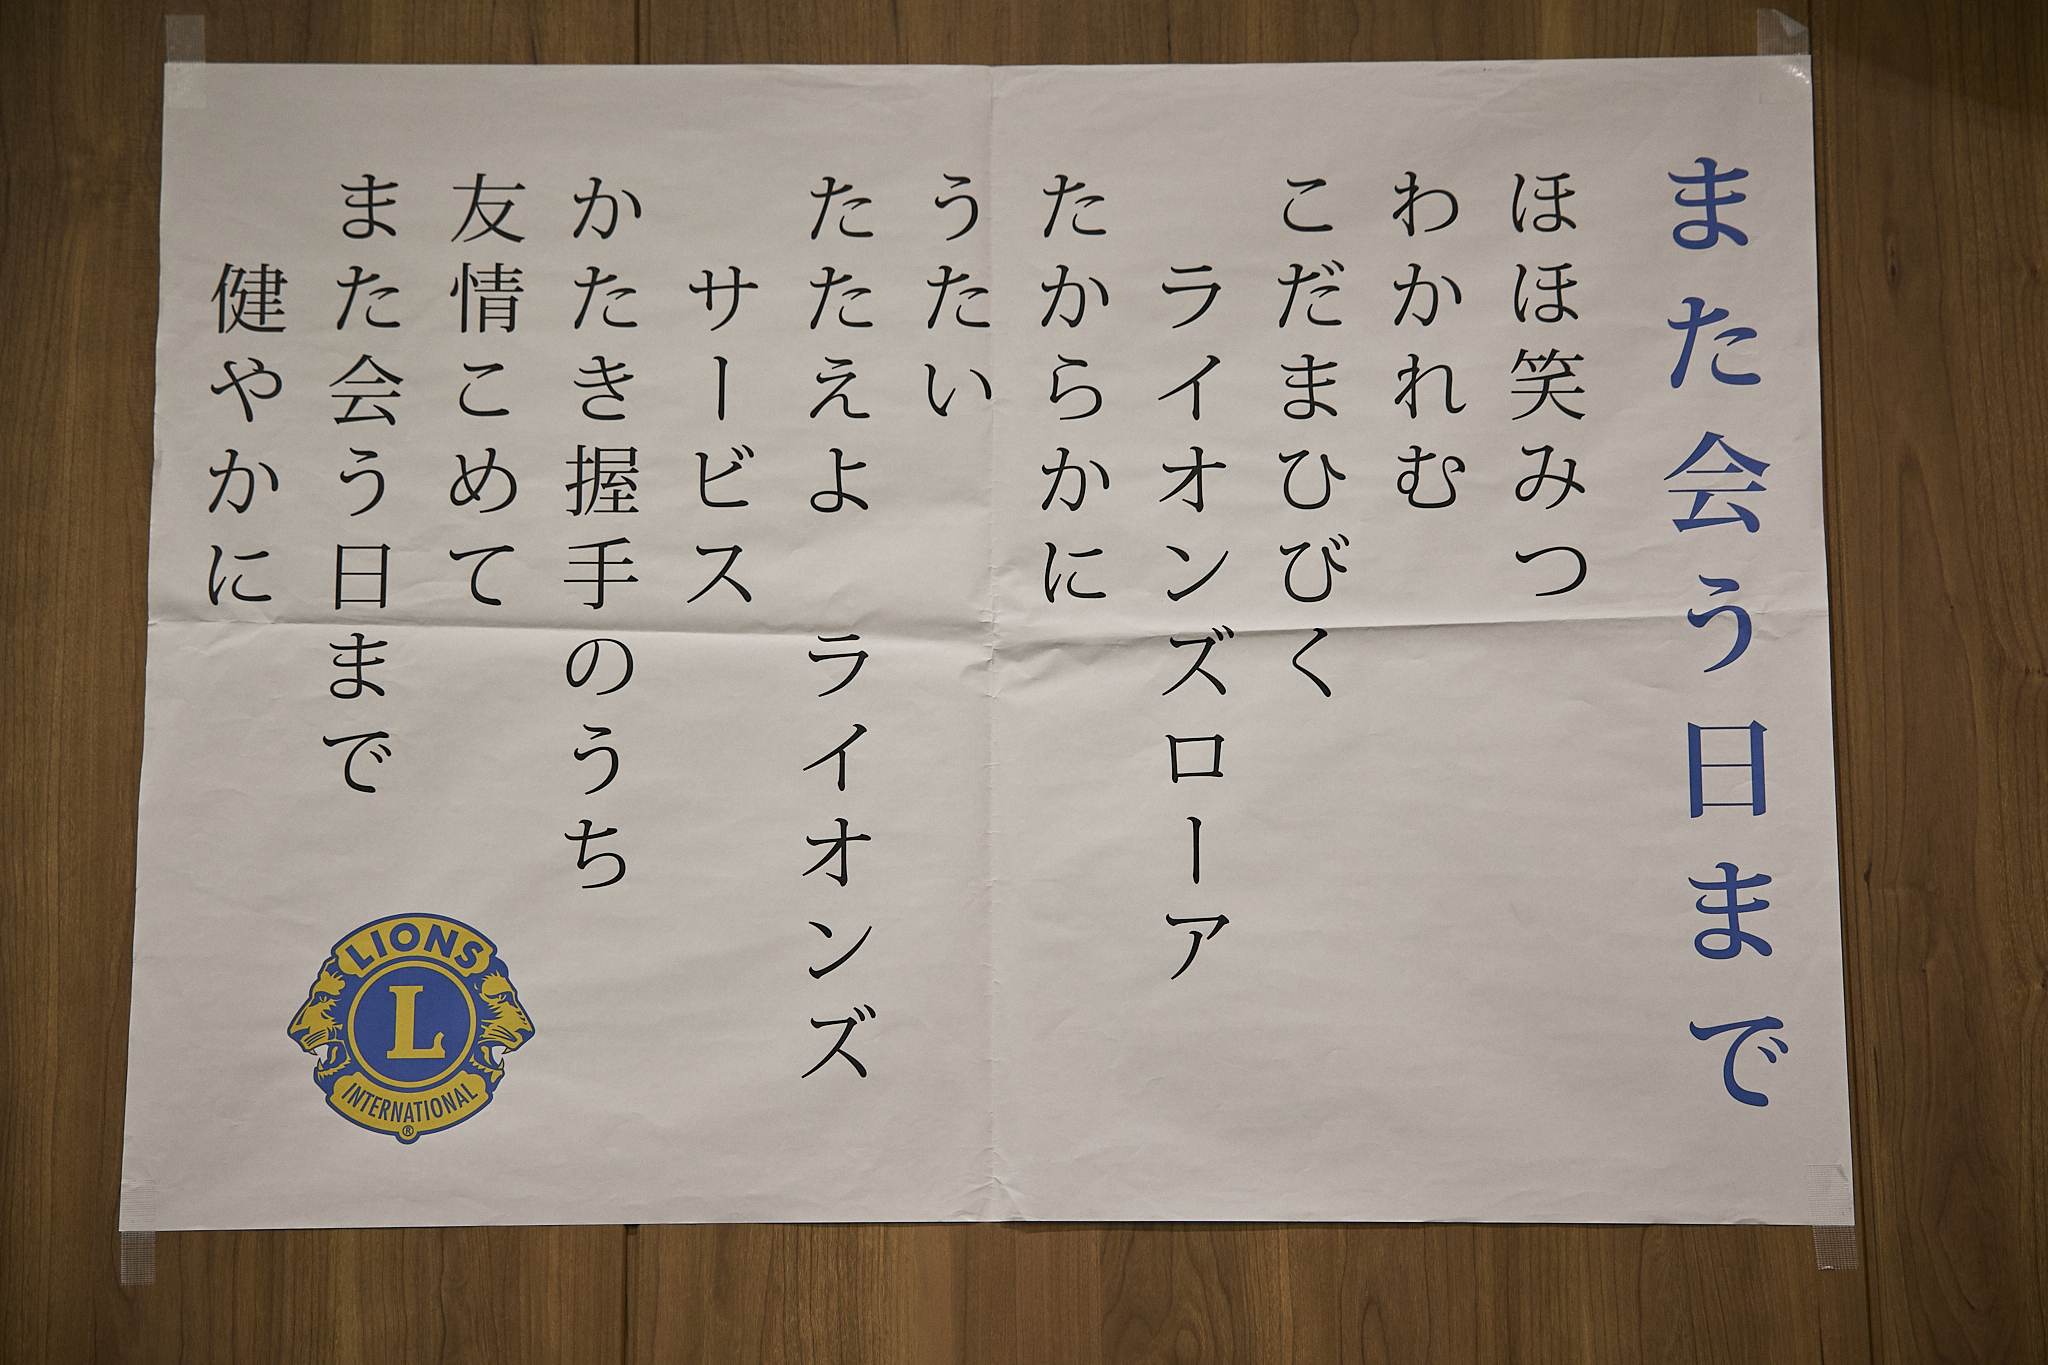 また会う日まで
ほほ笑みつ
わかれむ
こだまひびく
ライオンズローア
たからかに
うたい
たたえよ　ライオンズ
サービス
かたき握手のうち
友情こめて
また会う日まで
健やかに
LIONS
L
INTERNATIONAL
®